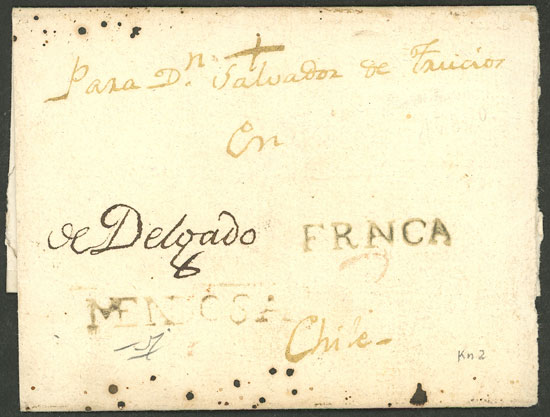 +
Para Dn. Salvador de Trucios
En
de Delgado FRNCA
6
MENDOSA
Chile
Kn 2